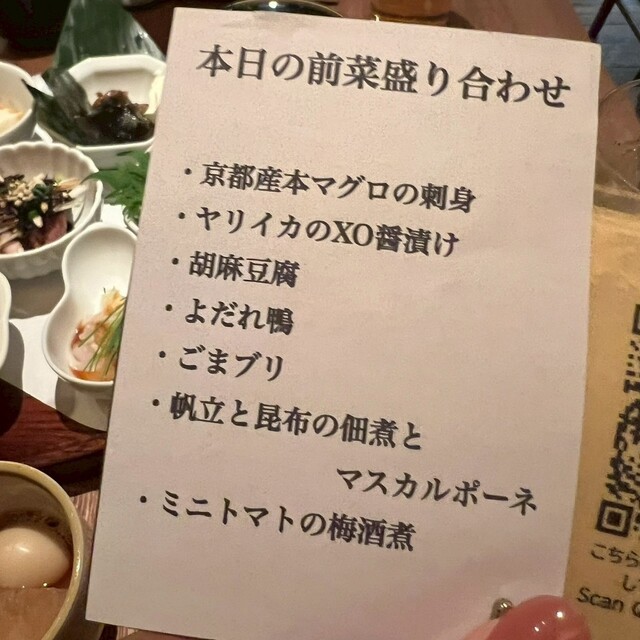 本日の前菜盛り合わせ
・京都産本マグロの刺身
・ヤリイカのXO醤漬け
・胡麻豆腐
・よだれ鴨
・ごまブリ
・帆立と昆布の佃煮と
マスカルポーネ
・ミニトマトの梅酒煮
こちら
し
Scan